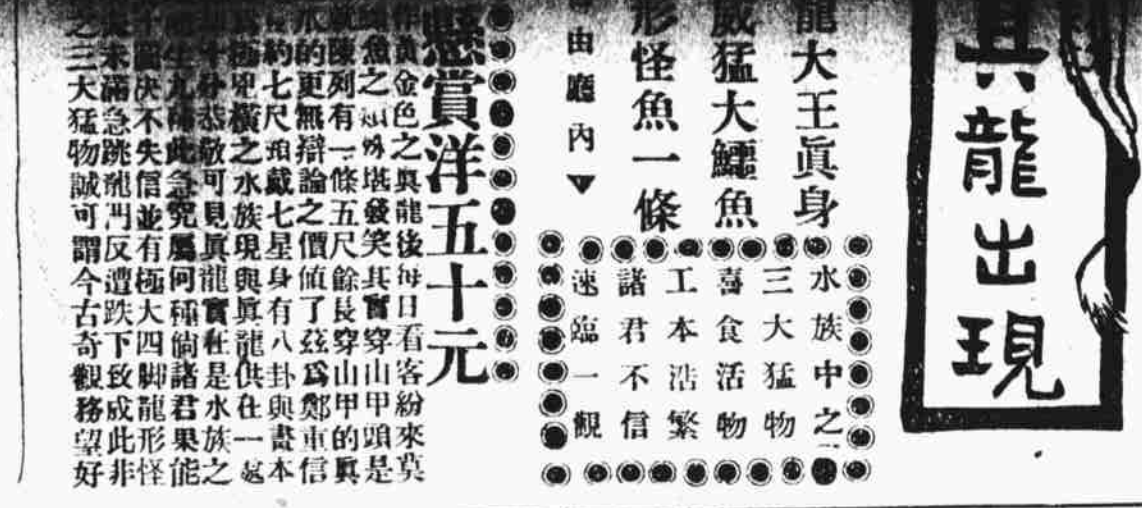 真龍出現
龍大王眞身
威猛大鱷魚
形怪魚一條
由廳內▼
水族中之
三大猛物
喜食活物
工本浩繁
諸君不信
速臨一觀
懸賞洋五十元
作黃金色之眞龍後每日看客紛來莫
魚之 堪發笑其實穿山甲頭是
陳列有一條五尺餘長穿山甲的眞
水的更無辯論之價值了茲爲鄭重信
約七尺 戴七星身有八卦與畫本
極兇橫之水族現與眞龍供在一處
十分恭敬可見眞龍實在是水族之
生九種此急究屬何種倘諸君果能
圖決不失信並有極大四脚龍形怪
未滿急跳龍門反遭跌下致成此非
之三大猛物誠可謂今古奇觀務望好